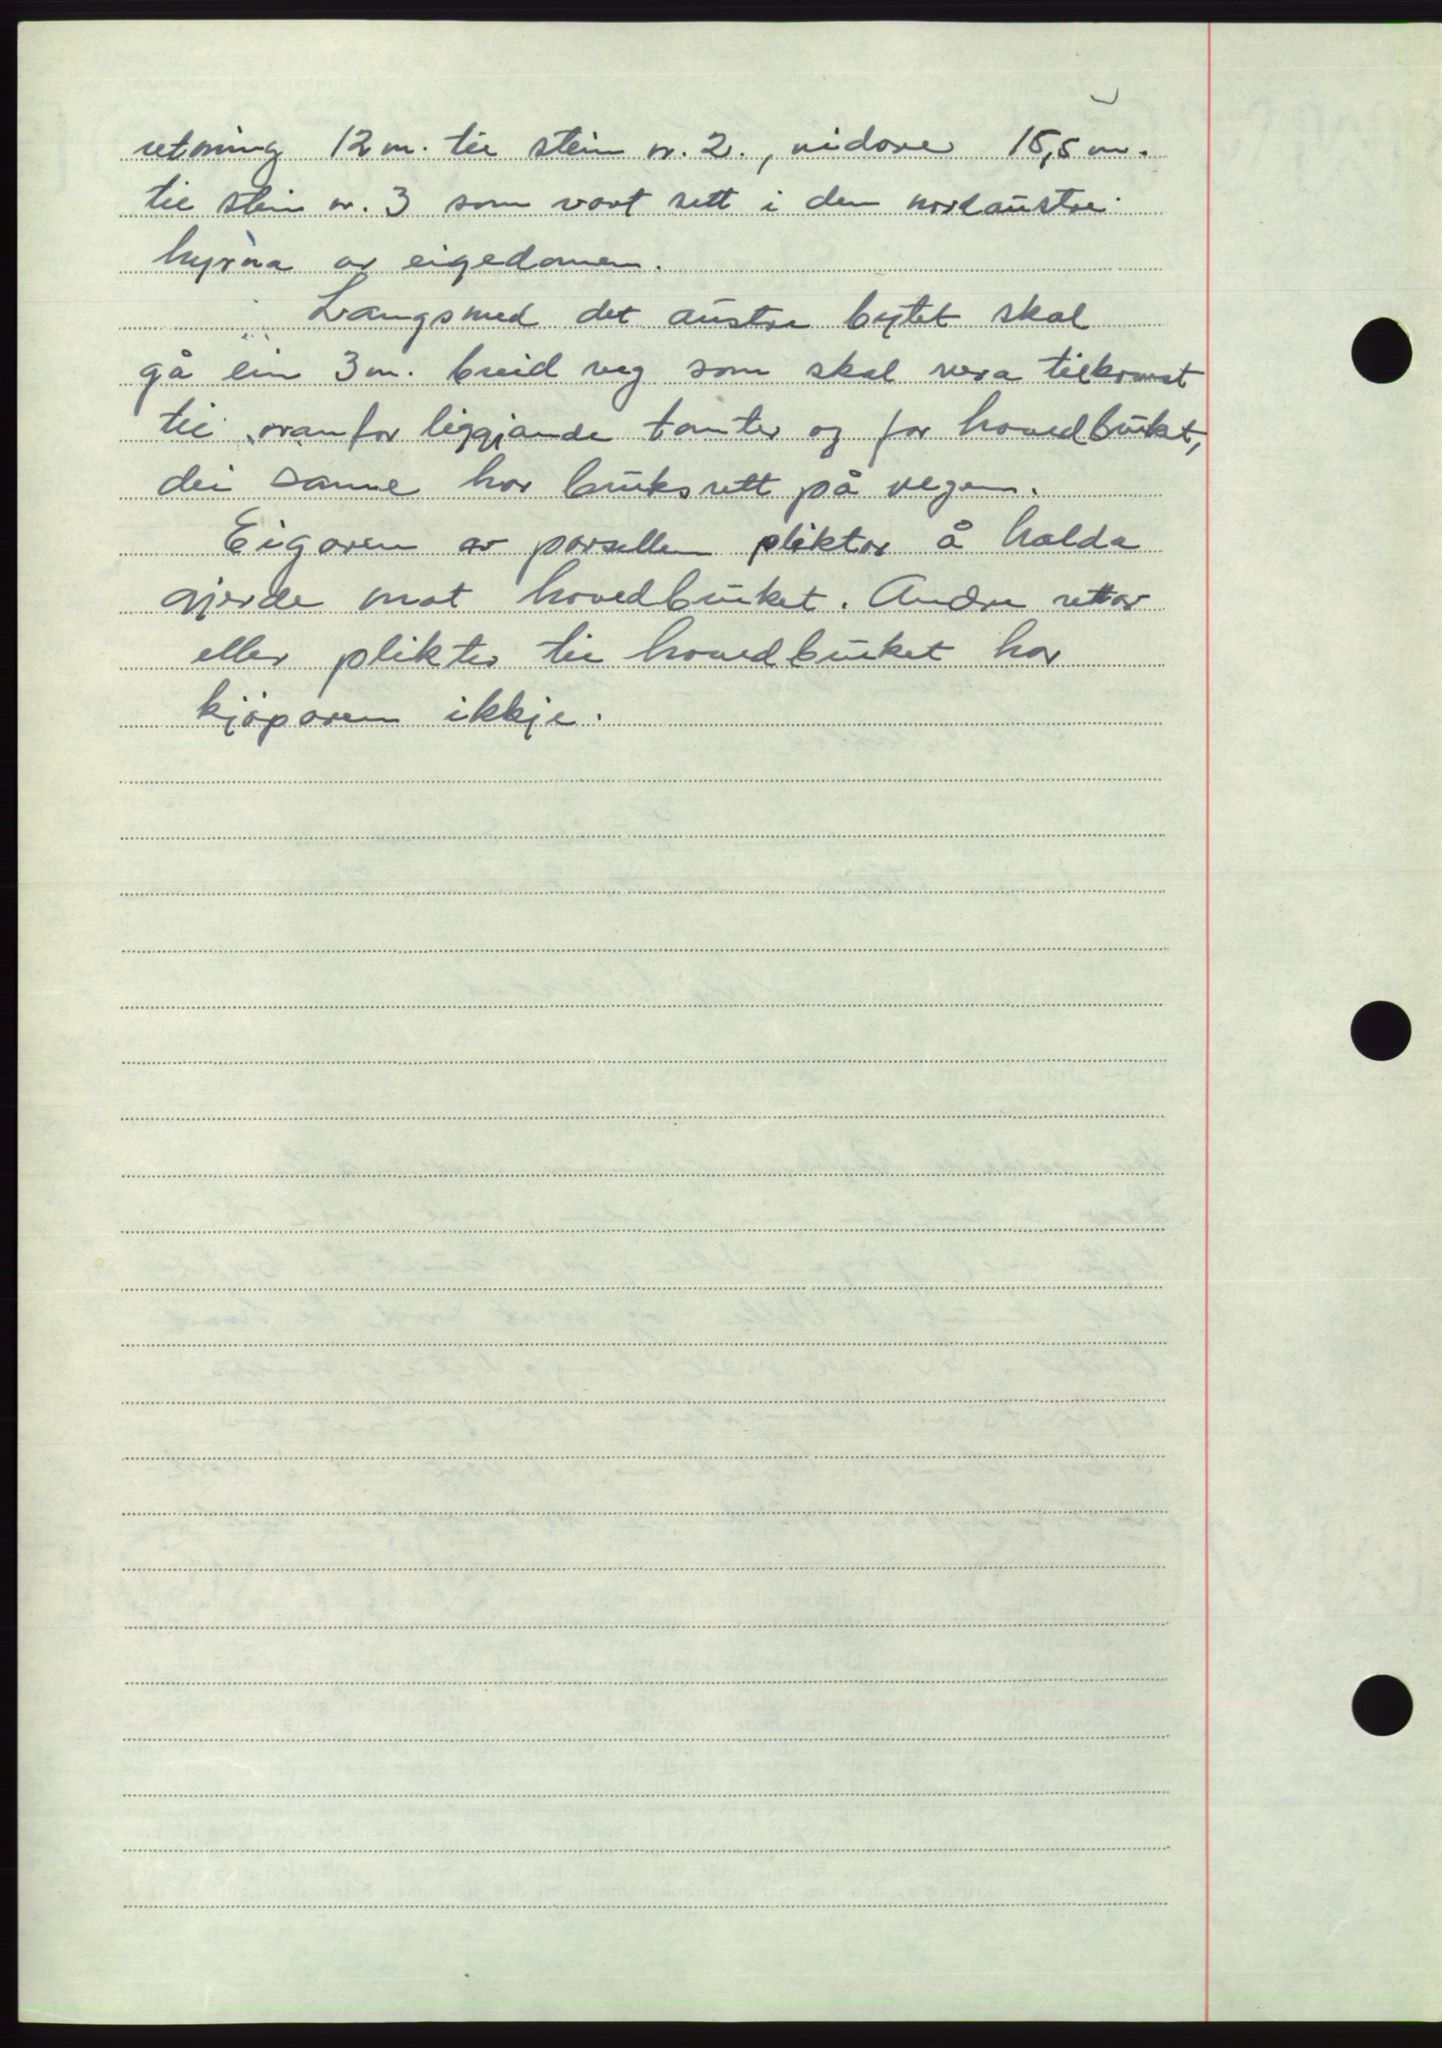 retning 12 m. til stein nr. 2., vidare 15,5 m.
til stein nr. 3 som vart sett i den nordaustre
hyrna av eigedomen.
Langsmed det austre bytet skal
gå ein 3 m. breid veg som skal vera tilkomst
til ovanfor liggjande tomter og for hovedbruket,
dei same har bruksrett på vegen.
Eigaren av parsellen pliktar å halda
gjerde mot hovedbruket. Andre rettar
eller plikter til hovedbruket har
kjöparen ikkje.